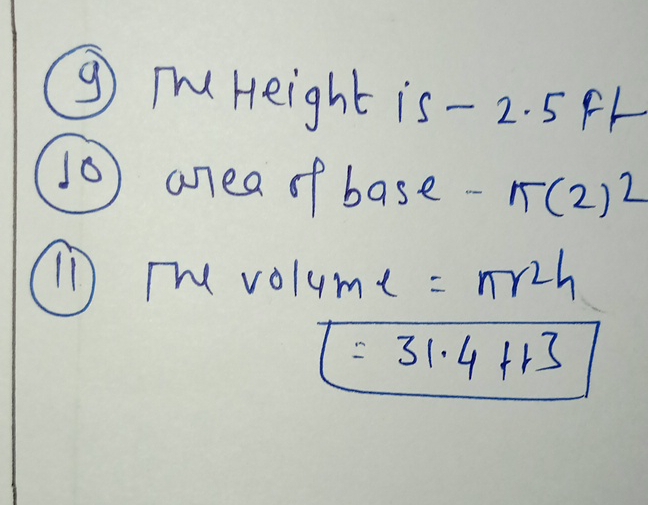 9 The Height is - 2.5 ft
10 area of base - π(2)2
11 The volume = πr2h
= 31.4 ft3